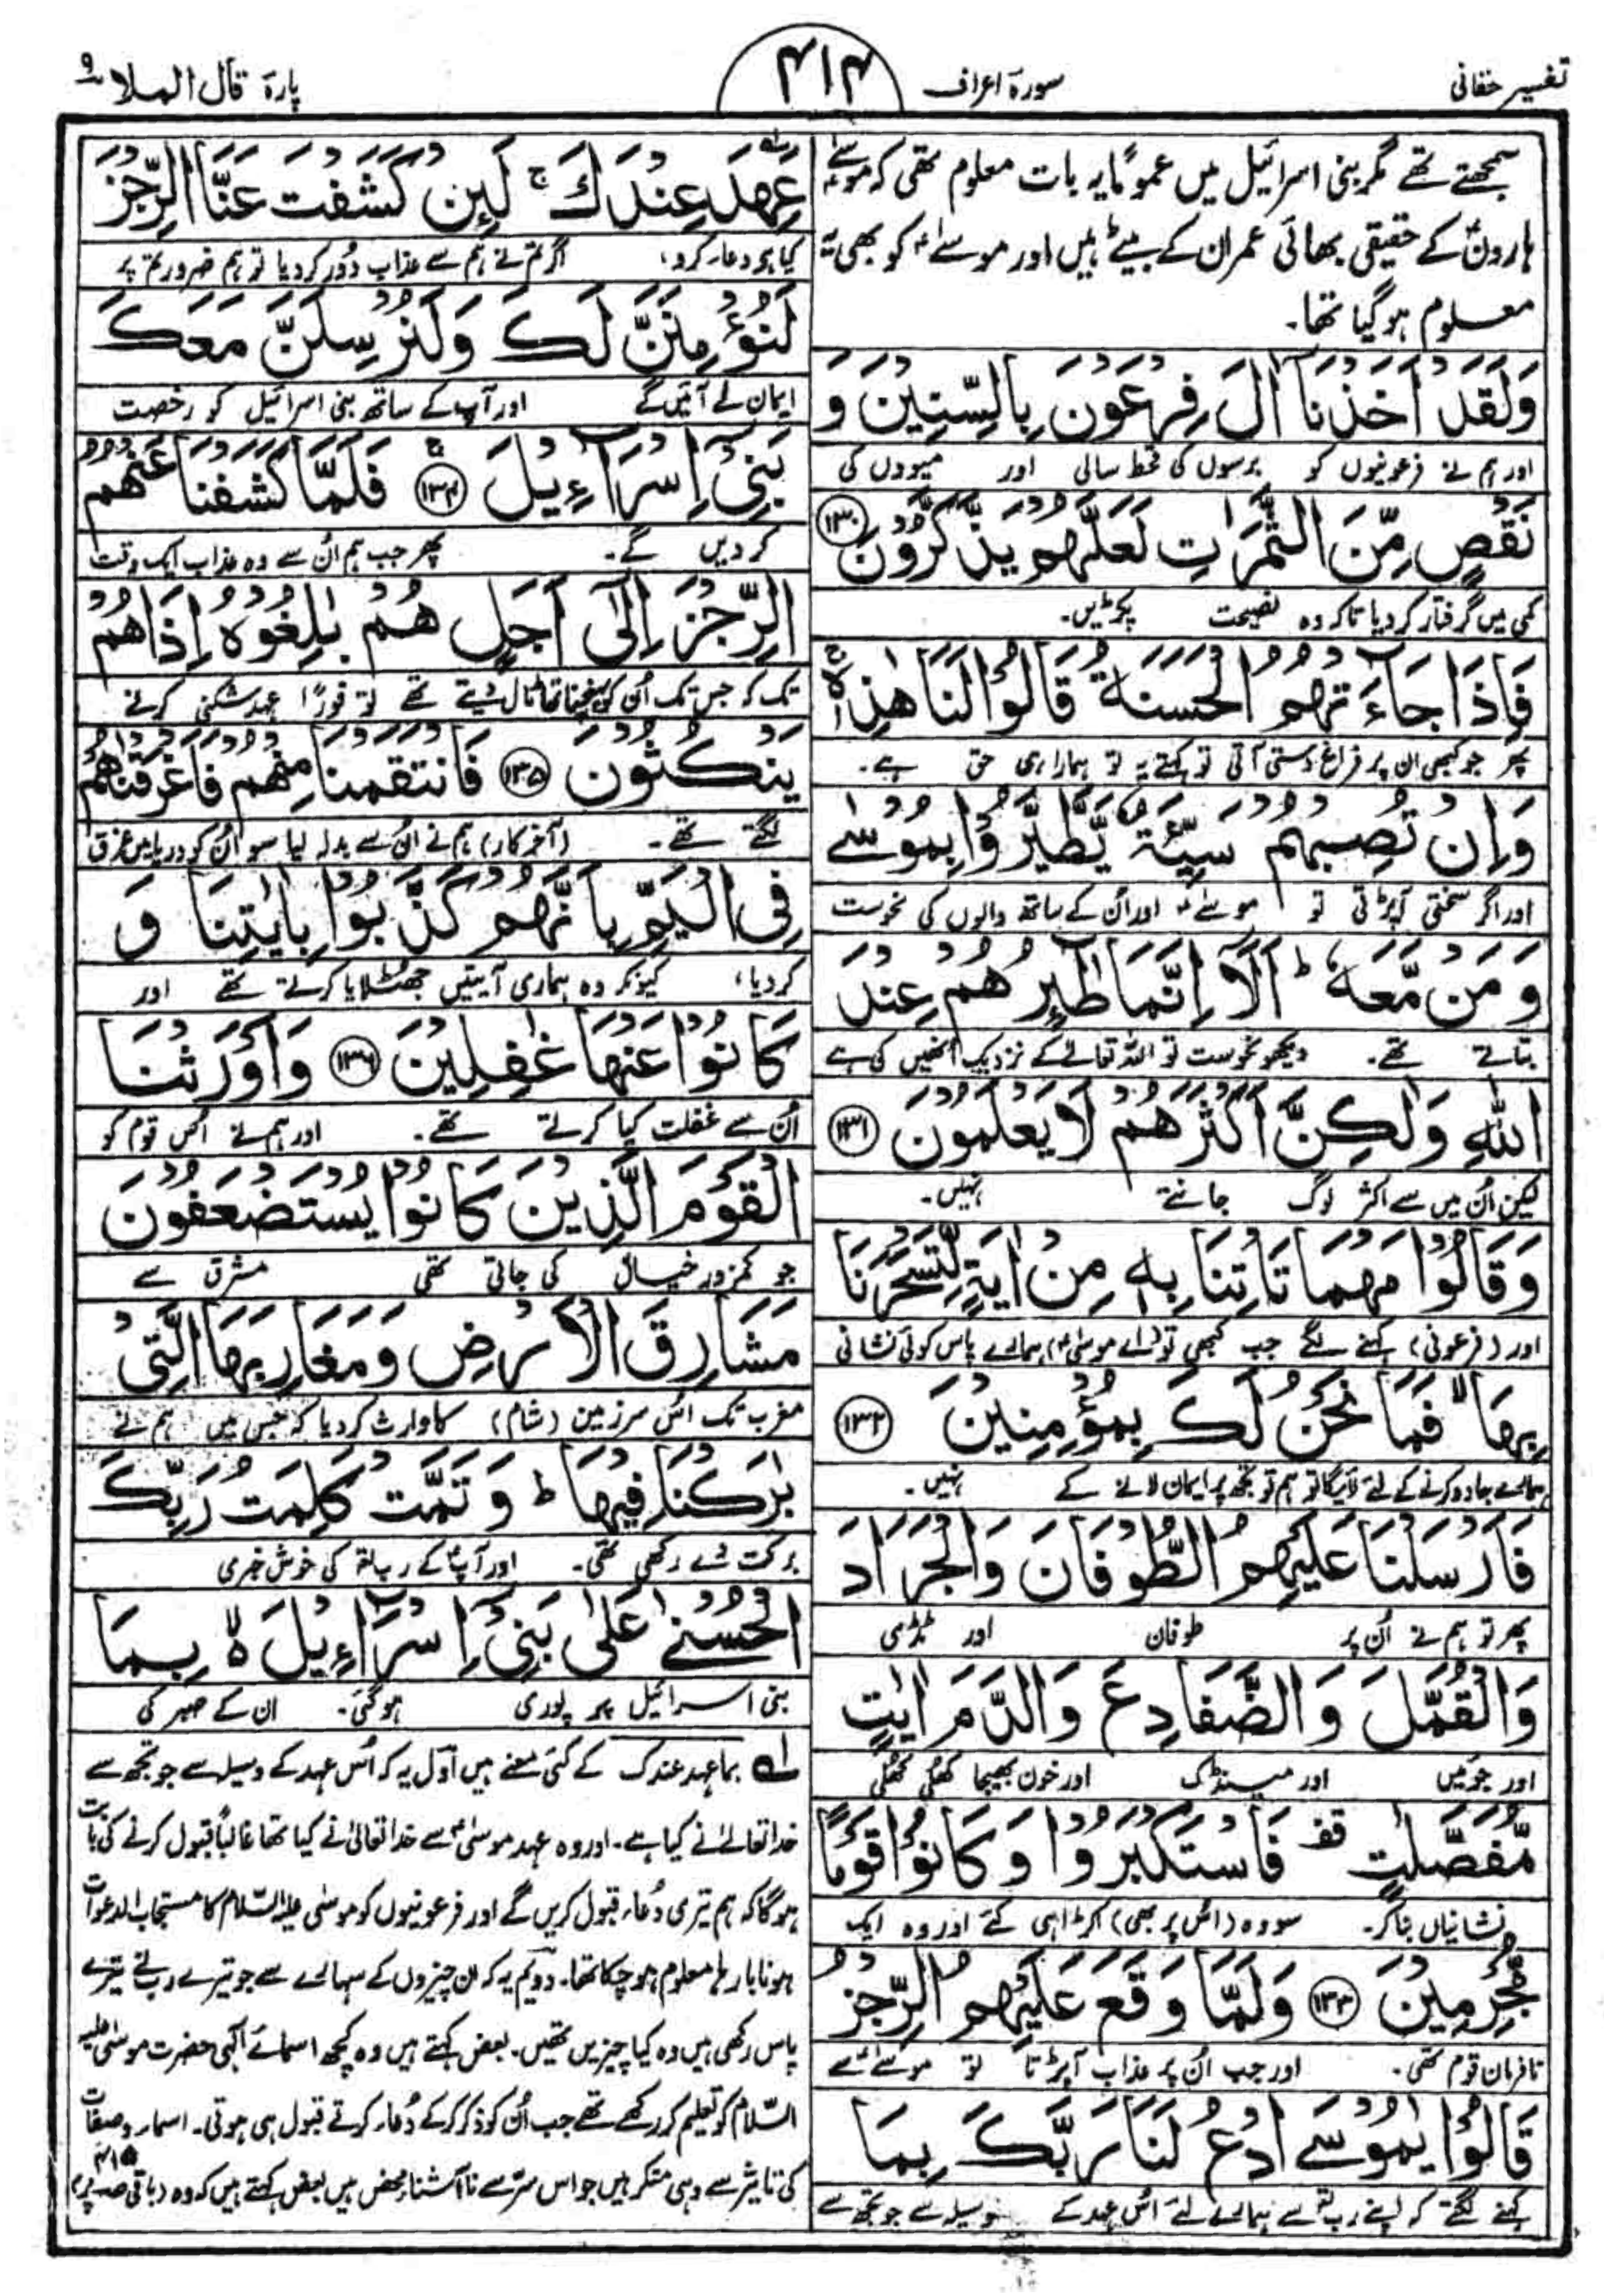 تفسیر حقانی
سورۃ اعراف
۴۱۴
پارۃ قال الملا ۹
سمجھتے تھے مگر بنی اسرائیل میں عموماً یہ بات معلوم تھی کہ موسےٰؑ
ہارونؑ کے حقیقی بھائی عمران کے بیٹے ہیں اور موسےٰؑ کو بھی یہ
معلوم ہو گیا تھا۔
وَلَقَدْ اَخَذْنَآ اٰلَ فِرْعَوْنَ بِالسِّنِیْنَ وَ
اور ہم نے فرعونیوں کو برسوں کی قحط سالی اور میووں کی
نَقْصٍ مِّنَ الثَّمَرٰتِ لَعَلَّهُمْ یَذَّكَّرُوْنَ ﴿۱۳۰﴾
کمی میں گرفتار کر دیا تاکہ وہ نصیحت پکڑیں۔
فَاِذَا جَآءَتْهُمُ الْحَسَنَةُ قَالُوْا لَنَا هٰذِهٖ ۚ
پھر جو کبھی ان پر فراغ دستی آتی تو کہتے یہ تو ہمارا ہی حق ہے۔
وَاِنْ تُصِبْهُمْ سَیِّئَةٌ یَّطَّیَّرُوْا بِمُوْسٰے
اور اگر سختی آپڑتی تو موسےٰؑ اور اُن کے ساتھ والوں کی نحوست
وَ مَنْ مَّعَهٗ ؕ اَلَآ اِنَّمَا طٰٓئِرُهُمْ عِنْدَ
بتاتے تھے۔ دیکھو نحوست تو اللہ تعالےٰ کے نزدیک انھیں کی ہے
اللّٰهِ وَلٰكِنَّ اَكْثَرَهُمْ لَا یَعْلَمُوْنَ ﴿۱۳۱﴾
لیکن اُن میں سے اکثر لوگ جانتے نہیں۔
وَقَالُوْا مَهْمَا تَاْتِنَا بِهٖ مِنْ اٰیَةٍ لِّتَسْحَرَنَا
اور (فرعونی) کہنے لگے جب کبھی تو (اے موسیٰؑ) ہمارے پاس کوئی نشانی
بِهَا ۙ فَمَا نَحْنُ لَكَ بِمُؤْمِنِیْنَ ﴿۱۳۲﴾
ہمارے جادو کرنے کے لئے لائیگا تو ہم تو تجھ پر ایمان لانے کے نہیں۔
فَاَرْسَلْنَا عَلَیْهِمُ الطُّوْفَانَ وَالْجَرَادَ
پھر تو ہم نے اُن پر طوفان اور ٹڈی
وَالْقُمَّلَ وَالضَّفَادِعَ وَالدَّمَ اٰیٰتٍ
اور جوئیں اور مینڈک اور خون بھیجا کھلی کھلی
مُّفَصَّلٰتٍ قف فَاسْتَكْبَرُوْا وَ كَانُوْا قَوْمًا
نشانیاں بنا کر۔ سو وہ (اس پر بھی) اکڑا ہی کئے اور وہ ایک
مُّجْرِمِیْنَ ﴿۱۳۳﴾ وَلَمَّا وَقَعَ عَلَیْهِمُ الرِّجْزُ
نافرمان قوم تھی۔ اور جب اُن پر عذاب آپڑتا تو موسےٰؑ سے
قَالُوْا یٰمُوْسَے ادْعُ لَنَا رَبَّكَ بِمَا
کہنے لگتے کہ اپنے رب سے ہمارے لئے اُس عہد کے وسیلہ سے جو تجھ سے
عَهِدَ عِنْدَكَ ۚ لَئِنْ كَشَفْتَ عَنَّا الرِّجْزَ
کیا ہو دعا کرو، اگر تم نے ہم سے عذاب دور کر دیا تو ہم ضرور تم پر
لَنُؤْمِنَنَّ لَكَ وَلَنُرْسِلَنَّ مَعَكَ
ایمان لے آئیں گے اور آپ کے ساتھ بنی اسرائیل کو رخصت
بَنِیْٓ اِسْرَآءِیْلَ ﴿۱۳۴﴾ فَلَمَّا كَشَفْنَا عَنْهُمُ
کر دیں گے۔ پھر جب ہم اُن سے وہ عذاب ایک وقت
الرِّجْزَ اِلٰٓی اَجَلٍ هُمْ بٰلِغُوْهُ اِذَا هُمْ
تک کہ جس تک اُن کو پہنچنا تھا ٹال دیتے تھے تو فوراً عہد شکنی کرنے
یَنْكُثُوْنَ ﴿۱۳۵﴾ فَانْتَقَمْنَا مِنْهُمْ فَاَغْرَقْنٰهُمْ
لگتے تھے۔ (آخر کار) ہم نے اُن سے بدلہ لیا سو اُن کو دریا میں غرق
فِی الْیَمِّ بِاَنَّهُمْ كَذَّبُوْا بِاٰیٰتِنَا وَ
کر دیا، کیونکہ وہ ہماری آیتیں جھٹلایا کرتے تھے اور
كَانُوْا عَنْهَا غٰفِلِیْنَ ﴿۱۳۶﴾ وَاَوْرَثْنَا
اُن سے غفلت کیا کرتے تھے۔ اور ہم نے اُس قوم کو
الْقَوْمَ الَّذِیْنَ كَانُوْا یُسْتَضْعَفُوْنَ
جو کمزور خیال کی جاتی تھی مشرق سے
مَشَارِقَ الْاَرْضِ وَمَغَارِبَهَا الَّتِیْ
مغرب تک اُس سرزمین (شام) کا وارث کر دیا کہ جس میں ہم نے
بٰرَكْنَا فِیْهَا ؕ وَ تَمَّتْ كَلِمَتُ رَبِّكَ
برکت دے رکھی تھی۔ اور آپ کے رب کی خوش خبری
الْحُسْنٰے عَلٰی بَنِیْٓ اِسْرَآءِیْلَ ۙ بِمَا
بنی اسرائیل پر پوری ہو گئی۔ ان کے صبر کی
لہ بما عہد عندک کے کئی معنے ہیں اول یہ کہ اُس عہد کے وسیلہ سے جو تجھ سے
خدا تعالےٰ نے کیا ہے۔ اور وہ عہد موسیٰؑ سے خدا تعالیٰ نے کیا تھا غالباً قبول کرنے کی بابت
ہوگا کہ ہم تیری دُعا قبول کریں گے اور فرعونیوں کو موسیٰ علیہ السلام کا مستجاب الدعوات
ہونا بارہا معلوم ہو چکا تھا۔ دوئم یہ کہ ان چیزوں کے سہارے سے جو تیرے رب نے تیرے
پاس رکھی ہیں وہ کیا چیزیں تھیں۔ بعض کہتے ہیں وہ کچھ اسمائے الٰہی حضرت موسیٰ علیہ
السّلام کو تعلیم کر رکھے تھے جب اُن کو ذکر کر کے دُعا کرتے قبول ہی ہوتی۔ اسماء و صفات
کی تاثیر سے وہی منکر ہیں جو اس سرّ سے نا آشناء محض ہیں بعض کہتے ہیں کہ وہ (باقی صفحہ ۴۱۵ پر)